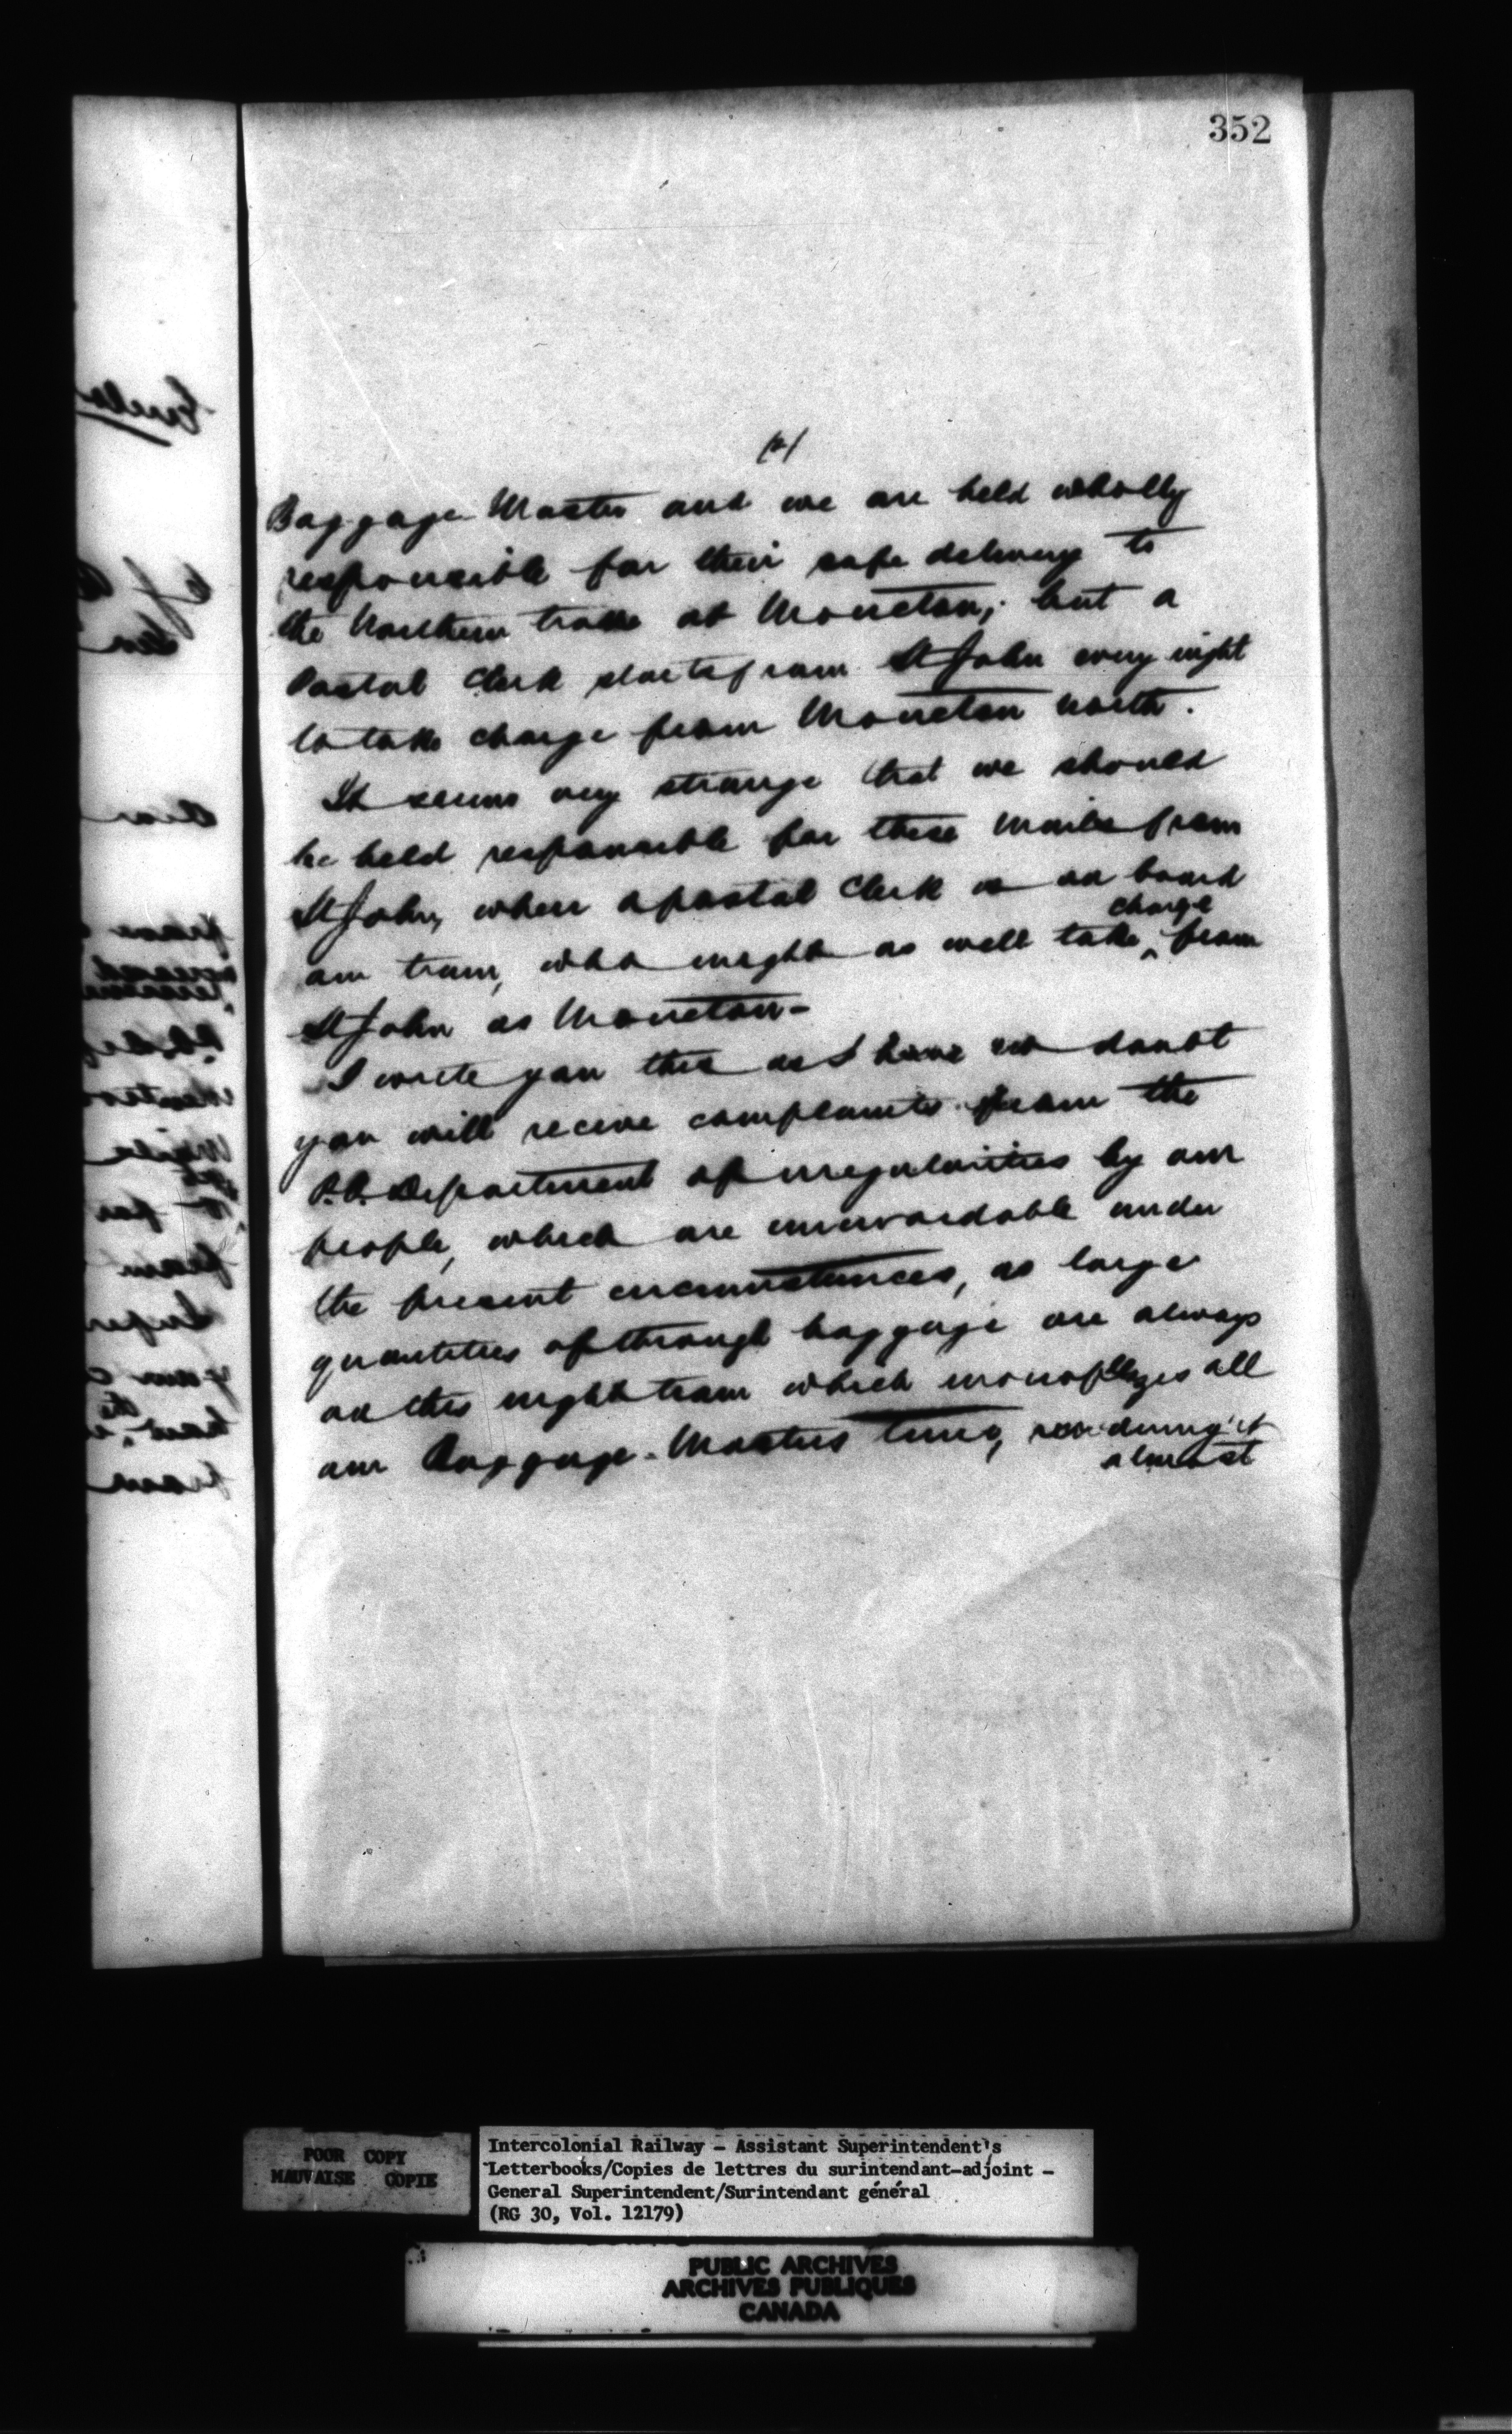 352
(2)
Baggage Master and we are held wholly
responsible for their safe delivery to
the Northern train at Moncton; but a
Postal Clerk starts from St John every night
to take charge from Moncton north.
It seems very strange that we should
be held responsible for these mails from
St John, when a postal Clerk is on board
our train, who might as well take charge from
St John as Moncton-
I wrote you this as I have no doubt
you will receive complaints from the
P.O. Department of irregularities by our
people, which are unavoidable under
the present circumstances, as large
quantities of through baggage are always
on this night train which monoplizes all
our Baggage-Masters time, rendering it
almost
POOR COPY
MAUVAISE COPIE
Intercolonial Railway - Assistant Superintendent's
Letterbooks/Copies de lettres du surintendant-adjoint -
General Superintendent/Surintendant général
(RG 30, Vol. 12179)
PUBLIC ARCHIVES
ARCHIVES PUBLIQUES
CANADA